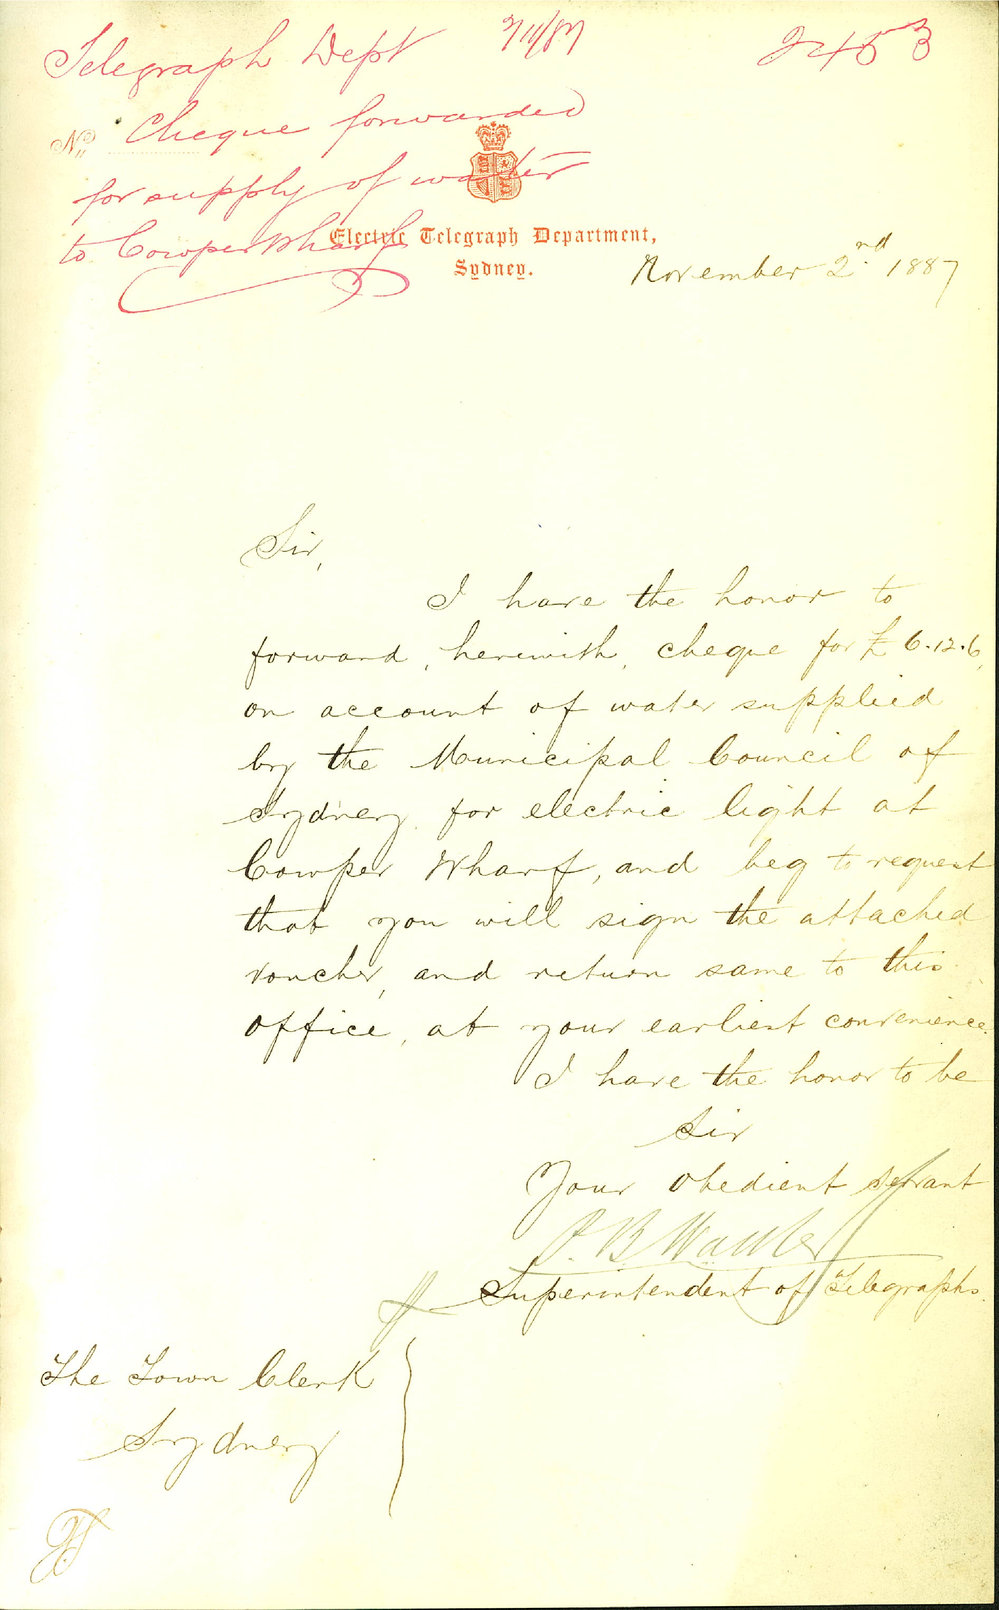 Telegraph Dept 2/11/87 2453
No. Cheque forwarded
for supply of water
to Cowper Wharf
Electric Telegraph Department,
Sydney.
November 2nd 1887
Sir,
I have the honor to
forward, herewith, cheque for £6.12.6,
on account of water supplied
by the Municipal Council of
Sydney for electric light at
Cowper Wharf, and beg to request
that you will sign the attached
voucher, and return same to this
office, at your earliest convenience.
I have the honor to be
Sir
Your obedient servant
P. B. Walker
Superintendent of Telegraphs.
The Town Clerk
Sydney